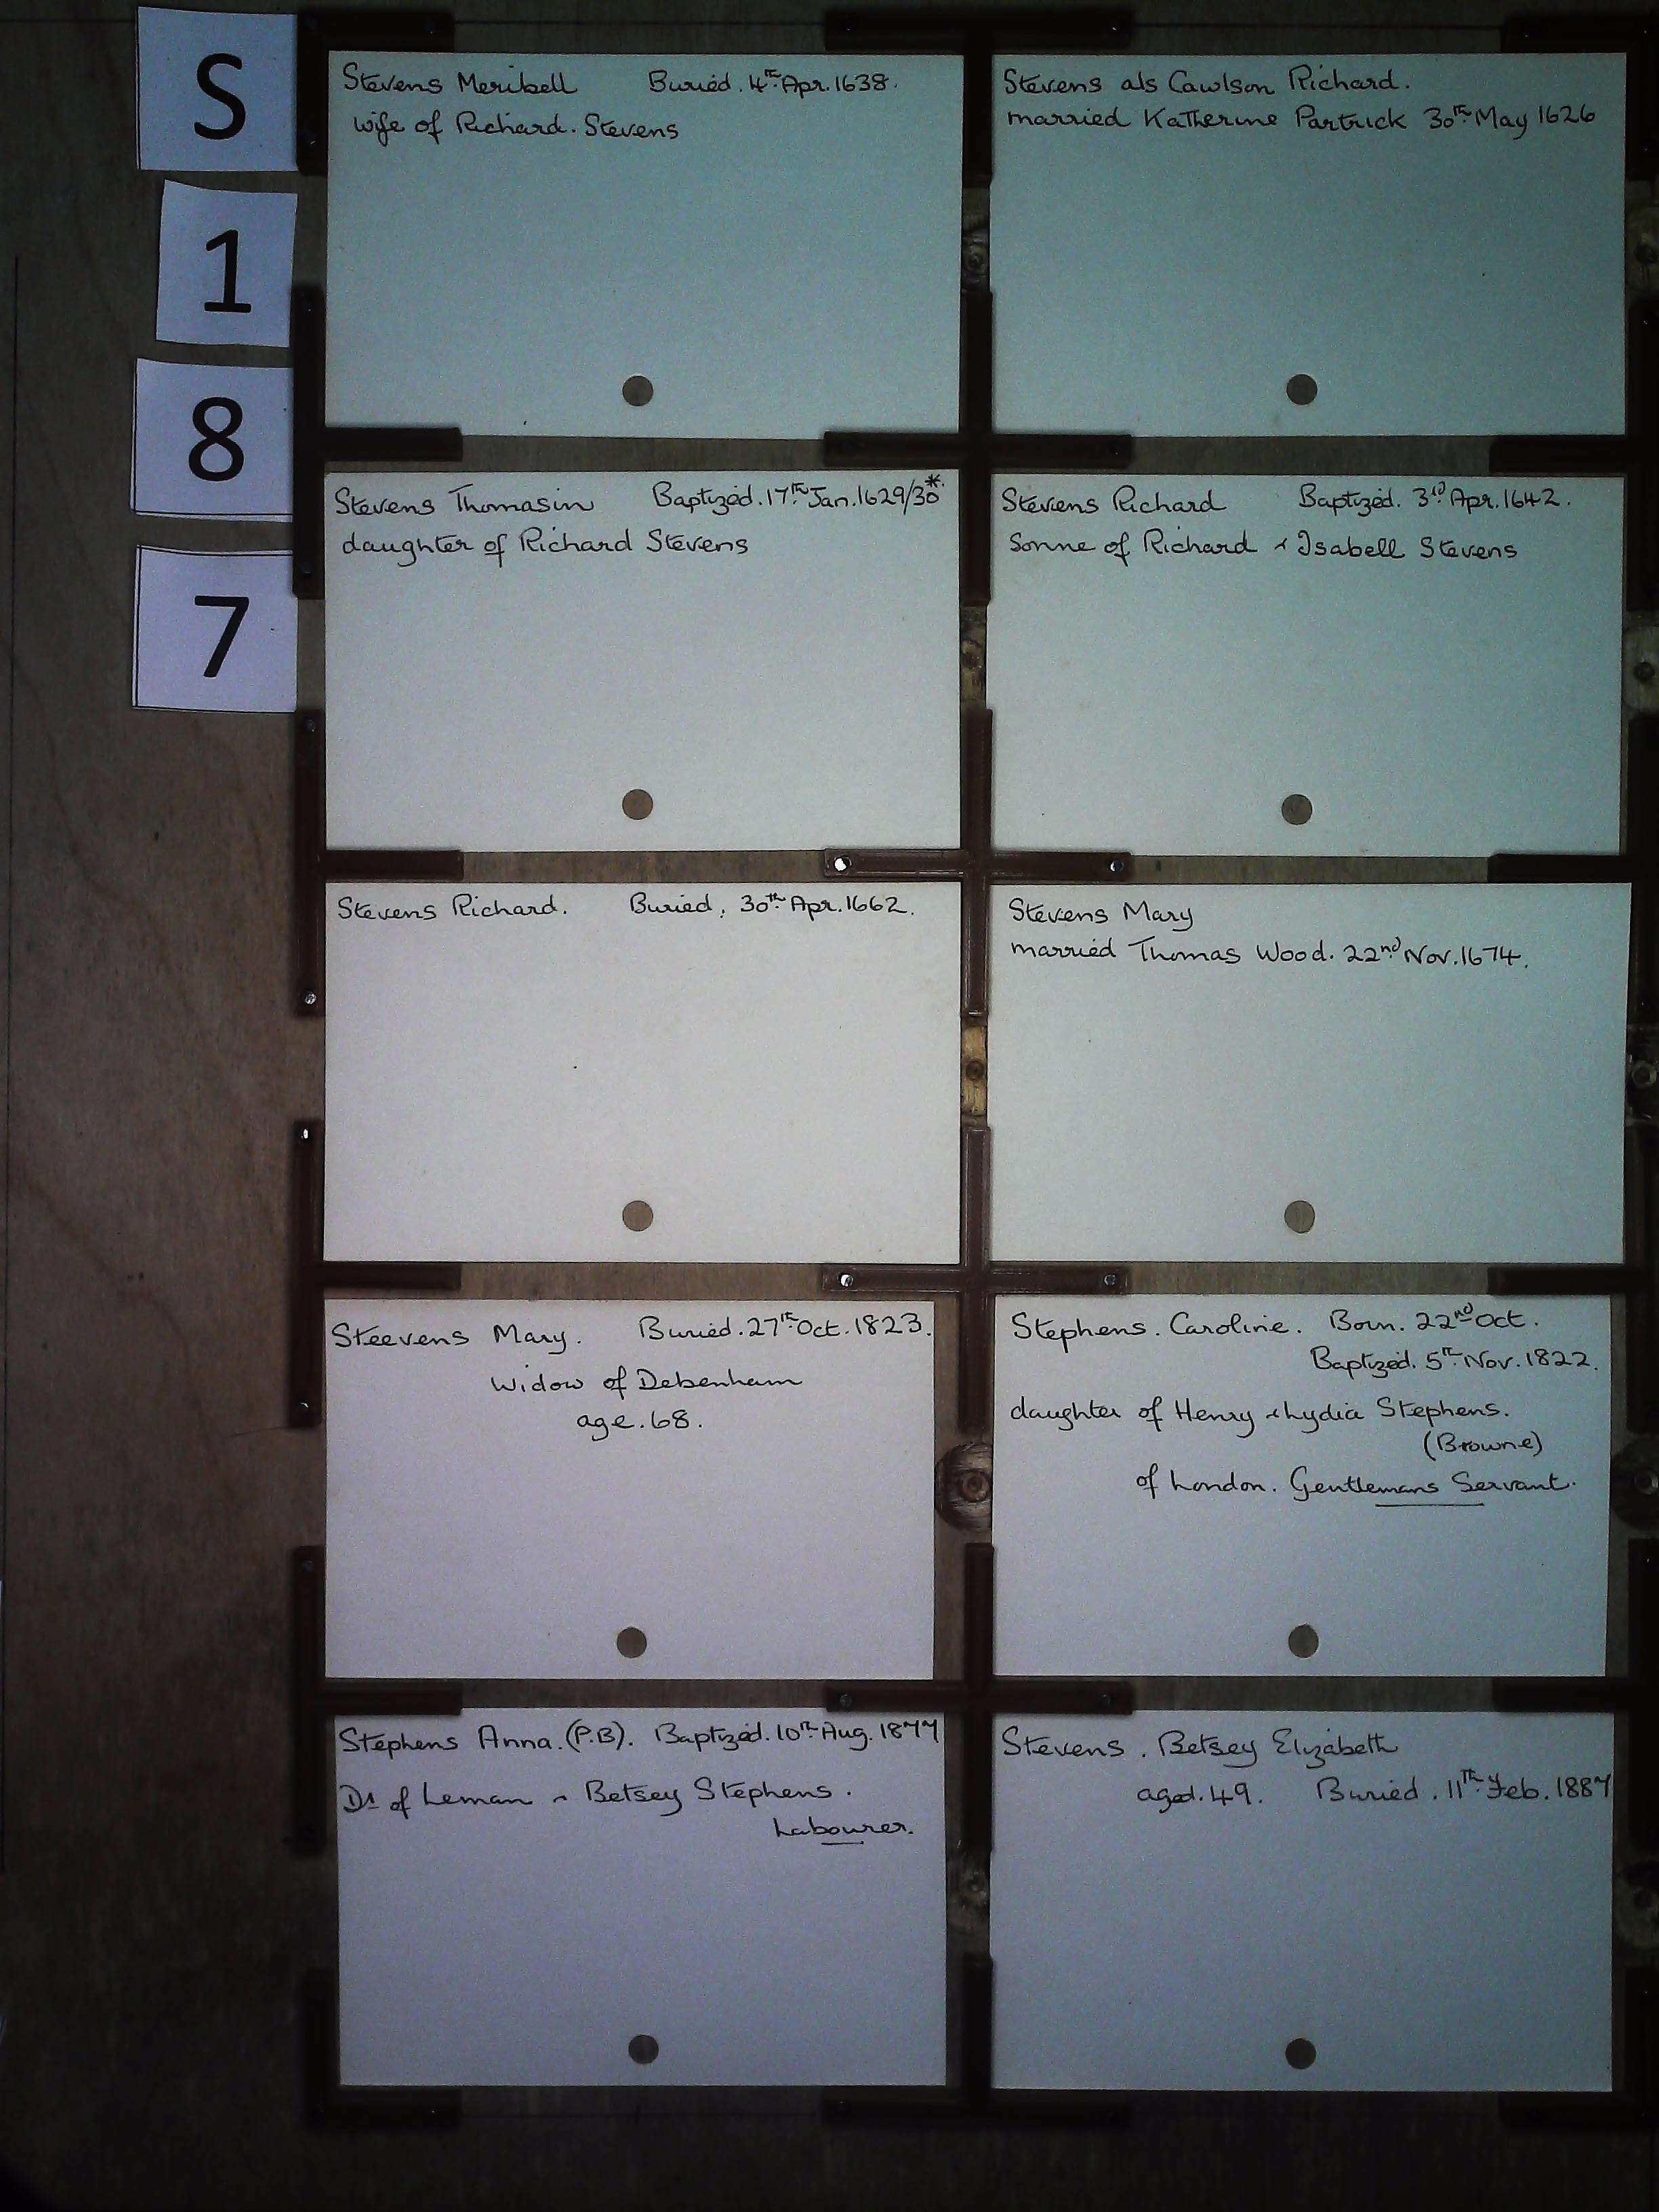 S
1
8
7
Stevens Meribell Buried. 4th Apr. 1638.
wife of Richard. Stevens
Stevens als Cawlson Richard.
married Katherine Partrick 30th May 1626
Stevens Thomasin Baptized. 17th Jan. 1629/30*
daughter of Richard Stevens
Stevens Richard Baptized. 3rd Apr. 1642.
Sonne of Richard & Isabell Stevens
Stevens Richard. Buried. 30th Apr. 1662.
Stevens Mary
married Thomas Wood. 22nd Nov. 1674.
Steevens Mary. Buried. 27th Oct. 1823.
Widow of Debenham
age. 68.
Stephens. Caroline. Born. 22nd Oct.
Baptized. 5th Nov. 1822.
daughter of Henry & Lydia Stephens.
(Browne)
of London. Gentlemans Servant.
Stephens Anna. (P.B). Baptized. 10th Aug. 1877
Dr of Leman & Betsey Stephens.
Labourer.
Stevens. Betsey Elizabeth
aged. 49. Buried. 11th Feb. 1887